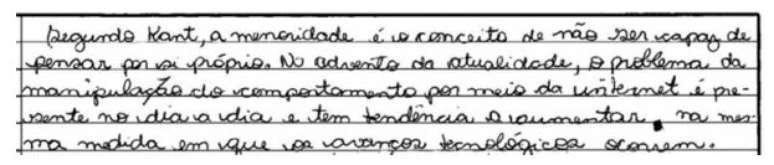 Segundo Kant, a menoridade é o conceito de não ser capaz de
pensar por si próprio. No advento da atualidade, o problema da
manipulação do comportamento por meio da internet é pre-
sente no dia a dia e tem tendência a aumentar, na mes-
ma medida em que os avanços tecnológicos ocorrem.